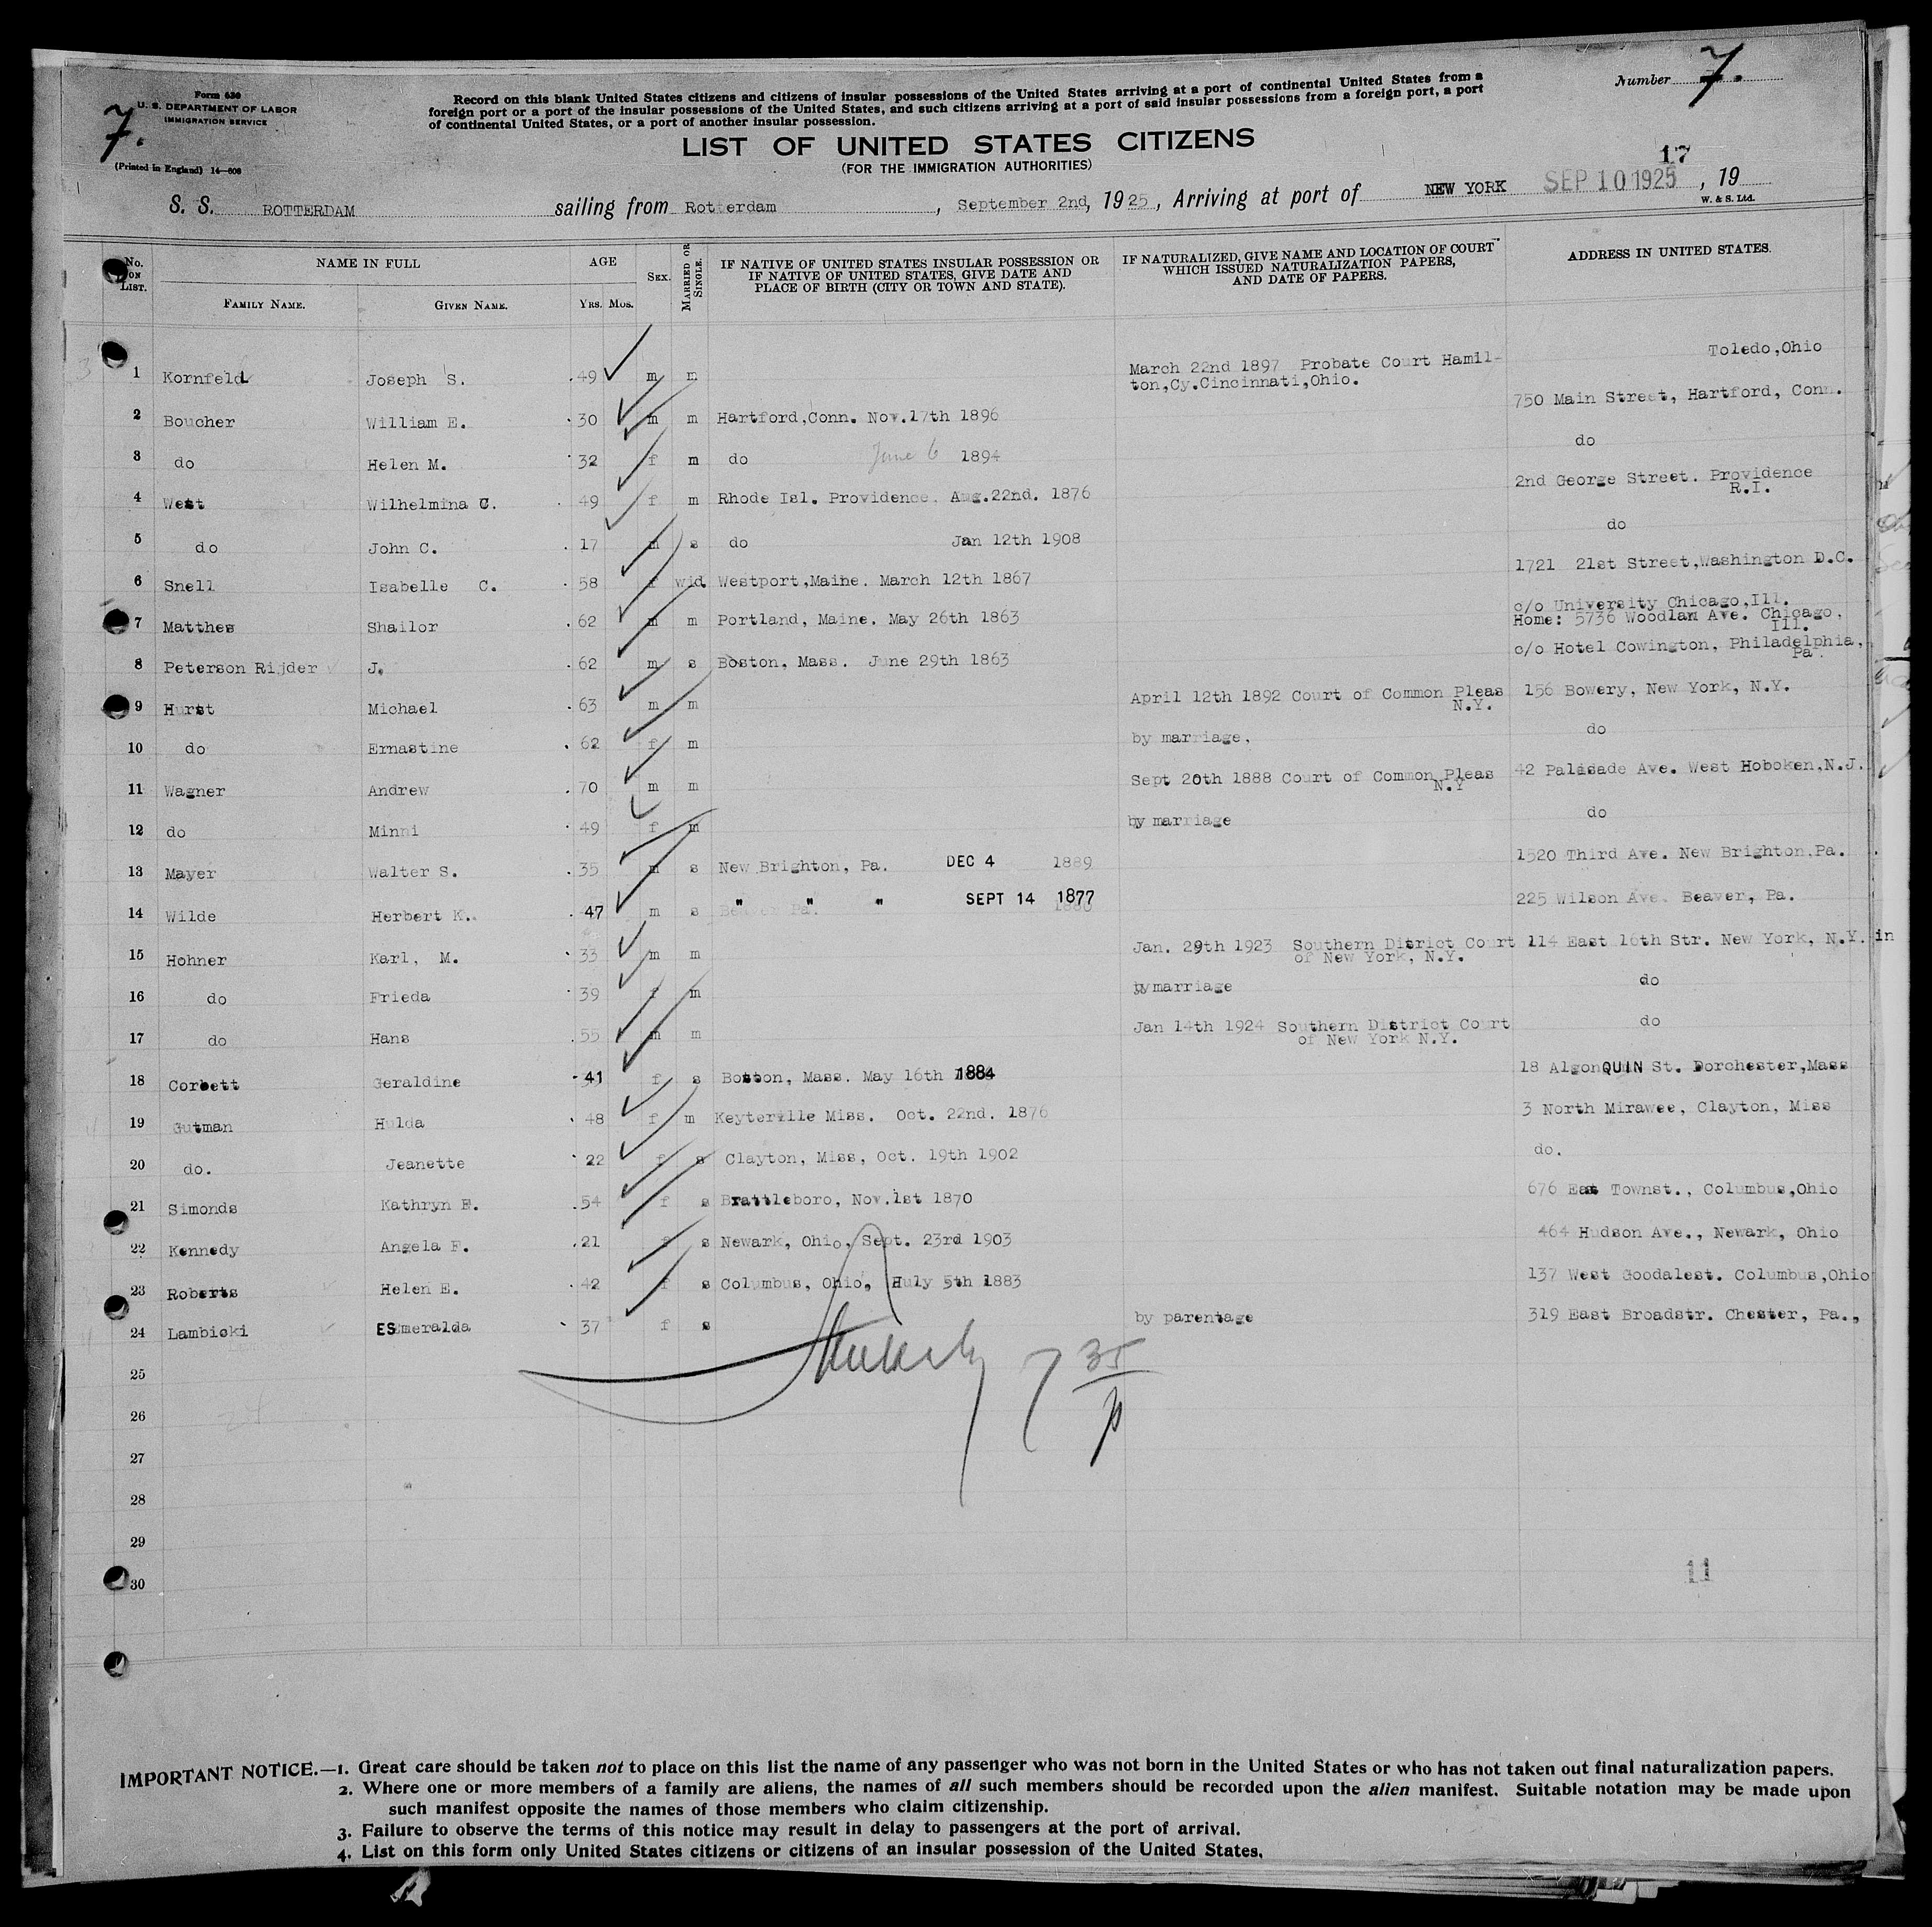 Form 630
U. S. DEPARTMENT OF LABOR
IMMIGRATION SERVICE
7.
(Printed in England) 14—606
Record on this blank United States citizens and citizens of insular possessions of the United States arriving at a port of continental United States from a
foreign port or a port of the insular possessions of the United States, and such citizens arriving at a port of said insular possessions from a foreign port, a port
of continental United States, or a port of another insular possession.
Number 7.
LIST OF UNITED STATES CITIZENS
(FOR THE IMMIGRATION AUTHORITIES)
17
S. S. ROTTERDAM sailing from Rotterdam, September 2nd, 1925, Arriving at port of NEW YORK SEP 10 1925, 19
W. & S. Ltd.
No. ON LIST.
NAME IN FULL
FAMILY NAME. GIVEN NAME.
AGE
YRS. MOS.
SEX.
MARRIED OR SINGLE.
IF NATIVE OF UNITED STATES INSULAR POSSESSION OR
IF NATIVE OF UNITED STATES, GIVE DATE AND
PLACE OF BIRTH (CITY OR TOWN AND STATE).
IF NATURALIZED, GIVE NAME AND LOCATION OF COURT
WHICH ISSUED NATURALIZATION PAPERS,
AND DATE OF PAPERS.
ADDRESS IN UNITED STATES.
1 Kornfeld Joseph S. 49 m m March 22nd 1897 Probate Court Hamil-
ton,Cy.Cincinnati,Ohio. Toledo,Ohio
2 Boucher William E. 30 m m Hartford,Conn. Nov.17th 1896 750 Main Street, Hartford, Conn.
3 do Helen M. 32 f m do June 6 1894 do
4 West Wilhelmina C. 49 f m Rhode Isl. Providence. Aug.22nd. 1876 2nd George Street. Providence
R.I.
5 do John C. 17 m s do Jan 12th 1908 do
6 Snell Isabelle C. 58 f wid. Westport,Maine. March 12th 1867 1721 21st Street,Washington D.C.
7 Matthes Shailor 62 m m Portland, Maine. May 26th 1863 c/o University Chicago,Ill.
Home: 5736 Woodlan Ave. Chicago,
Ill.
8 Peterson Rijder J. 62 m s Boston, Mass. June 29th 1863 c/o Hotel Cowington, Philadelphia,
Pa.
9 Hurst Michael 63 m m April 12th 1892 Court of Common Pleas
N.Y. 156 Bowery, New York, N.Y.
10 do Ernastine 62 f m by marriage, do
11 Wagner Andrew 70 m m Sept 20th 1888 Court of Common Pleas
N.Y 42 Palisade Ave. West Hoboken,N.J.
12 do Minni 49 f m by marriage do
13 Mayer Walter S. 35 m s New Brighton, Pa. DEC 4 1889 1520 Third Ave. New Brighton,Pa.
14 Wilde Herbert K. 47 m s " " " SEPT 14 1877 225 Wilson Ave. Beaver, Pa.
15 Hohner Karl, M. 33 m m Jan. 29th 1923 Southern District Court
of New York, N.Y. 114 East 16th Str. New York, N.Y. in
16 do Frieda 39 f m by marriage do
17 do Hans 55 m m Jan 14th 1924 Southern District Court
of New York N.Y. do
18 Corbett Geraldine 41 f s Boston, Mass. May 16th 1884 18 AlgonQUIN St. Dorchester,Mass
19 Gutman Hulda 48 f m Keyterille Miss. Oct. 22nd. 1876 3 North Mirawee, Clayton, Miss
20 do. Jeanette 22 f s Clayton, Miss, Oct. 19th 1902 do.
21 Simonds Kathryn E. 54 f s Brattleboro, Nov.1st 1870 676 East Townst., Columbus,Ohio
22 Kennedy Angela F. 21 f s Newark, Ohio, Sept. 23rd 1903 464 Hudson Ave., Newark, Ohio
23 Roberts Helen E. 42 f s Columbus, Ohio, Huly 5th 1883 137 West Goodalest. Columbus,Ohio
24 Lambicki ESmeralda 37 f s by parentage 319 East Broadstr. Chester, Pa.,
25
7 35/p
26
27
28
29
30
11
IMPORTANT NOTICE.—1. Great care should be taken not to place on this list the name of any passenger who was not born in the United States or who has not taken out final naturalization papers.
2. Where one or more members of a family are aliens, the names of all such members should be recorded upon the alien manifest. Suitable notation may be made upon
such manifest opposite the names of those members who claim citizenship.
3. Failure to observe the terms of this notice may result in delay to passengers at the port of arrival.
4. List on this form only United States citizens or citizens of an insular possession of the United States.